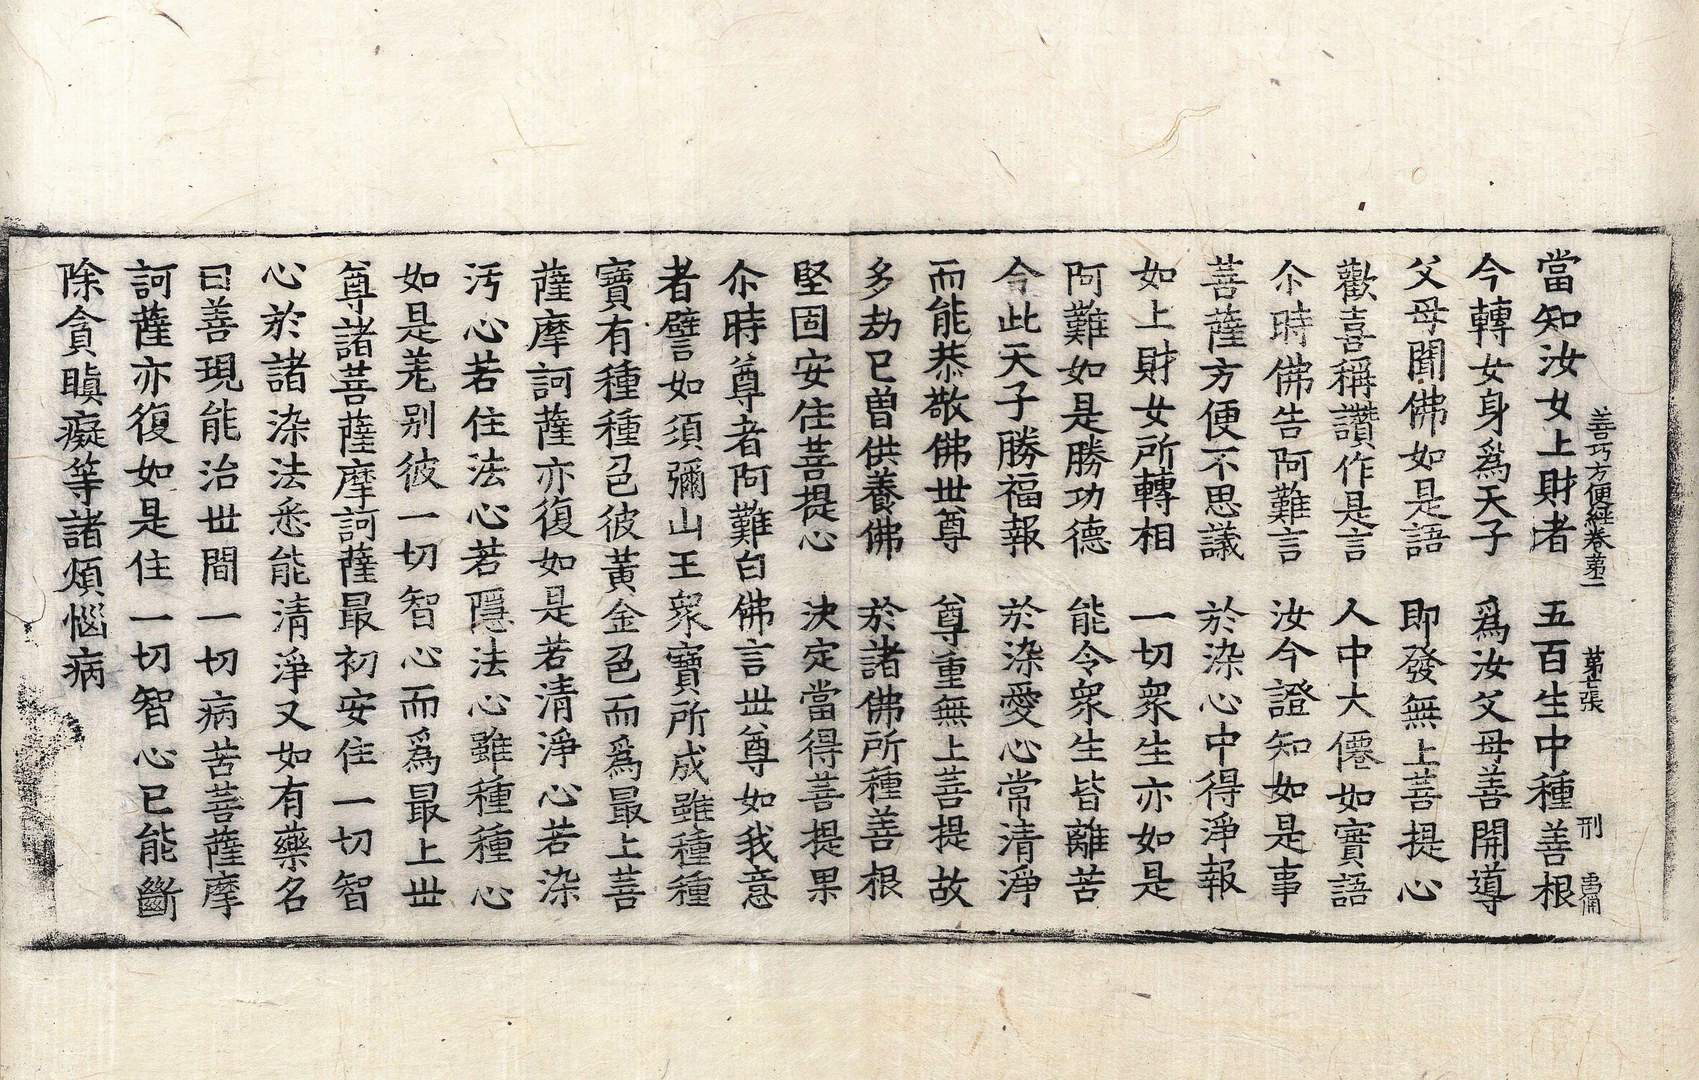 善巧方便經卷苐二 苐 張 刑
當知汝女上財者 五百生中種善根
今轉女身爲天子 爲汝父母善開導
父母聞佛如是語 即發無上菩提心
歡喜稱讚作是言 人中大僊如實語
尒時佛告阿難言 汝今證知如是事
菩薩方便不思議 於染心中得淨報
如上財女所轉相 一切衆生亦如是
阿難如是勝功德 能令衆生皆離苦
令此天子勝福報 於染愛心常清淨
而能恭敬佛世尊 尊重無上菩提故
多劫已曾供養佛 於諸佛所種善根
堅固安住菩提心 決定當得菩提果
尒時尊者阿難白佛言世尊如我意
者譬如須彌山王衆寶所成雖種種
寶有種種色彼黃金色而爲最上菩
薩摩訶薩亦復如是若清淨心若染
汚心若住法心若隱法心雖種種心
如是差别彼一切智心而爲最上世
尊諸菩薩摩訶薩最初安住一切智
心於諸染法悉能清淨又如有藥名
曰善現能治世間一切病苦菩薩摩
訶薩亦復如是住一切智心已能斷
除貪瞋癡等諸煩惱病